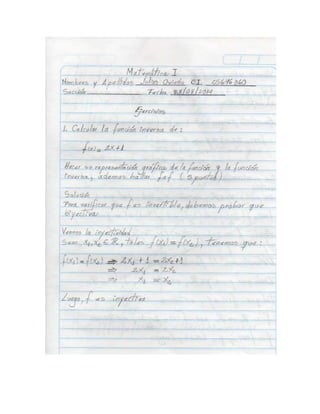 Matemática I
Nombres y Apellidos Julio Oviedo C.I.
Sección Fecha
Ejercicios
1. Calcular la función inversa de:
f(x) = 2x+1
Hacer su representación gráfica de la función y la función
inversa, además hallar f∘f (5 puntos)
Solución
Para verificar que f es invertible, debemos probar que
biyectiva.
Veamos la inyectividad
Sean x₁, x₂ ∈ R, tales f(x₁) = f(x₂), tenemos que:
f(x₁) = f(x₂) ⇒ 2x₁ + 1 = 2x₂+1
⇒ 2x₁ = 2x₂
⇒ x₁ = x₂
Luego, f es inyectiva